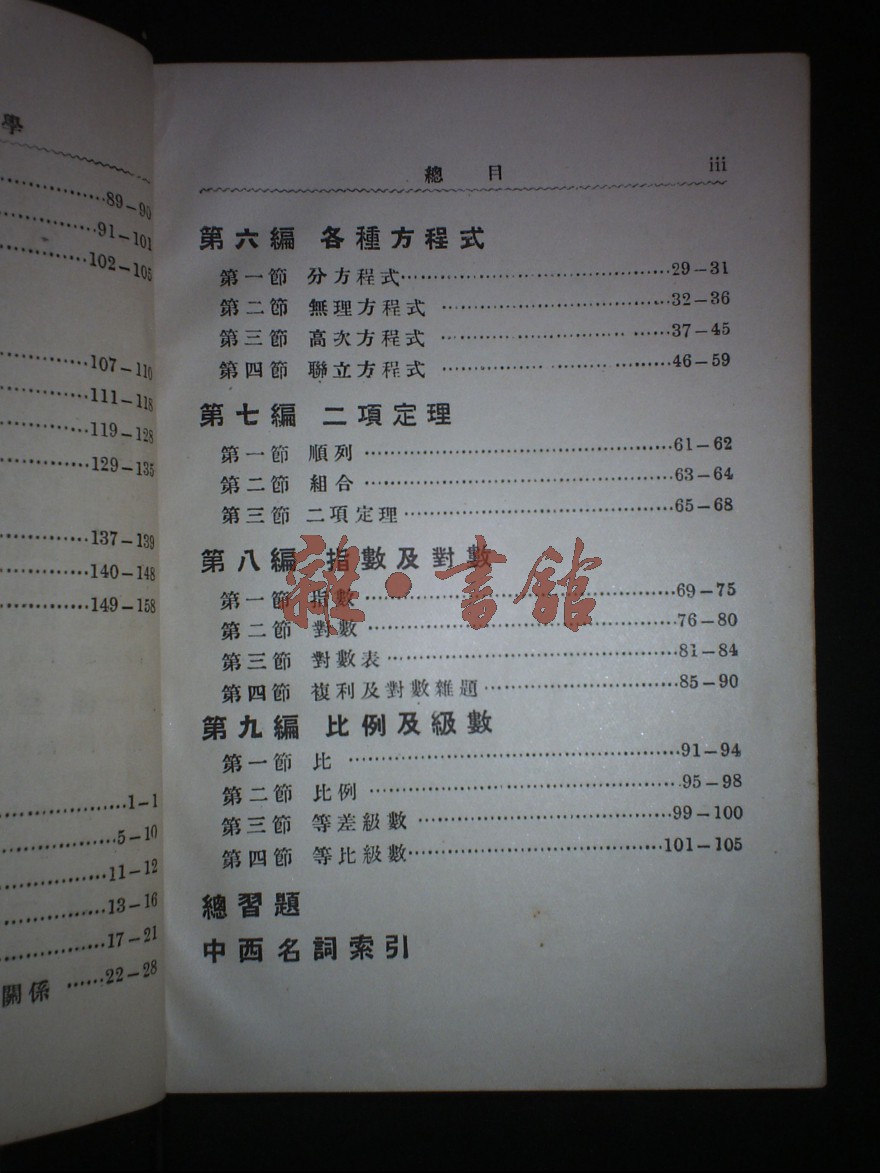 學
89–90
91–101
102–105
107–110
111–118
119–128
129–135
137–139
140–148
149–158
1–1
5–10
11–12
13–16
17–21
關係 ······22–28
總 目 iii
第六編 各種方程式
第一節 分方程式······29–31
第二節 無理方程式······32–36
第三節 高次方程式······37–45
第四節 聯立方程式······46–59
第七編 二項定理
第一節 順列······61–62
第二節 組合······63–64
第三節 二項定理······65–68
第八編 指數及對數
第一節 指數······69–75
第二節 對數······76–80
第三節 對數表······81–84
第四節 複利及對數雜題······85–90
第九編 比例及級數
第一節 比······91–94
第二節 比例······95–98
第三節 等差級數······99–100
第四節 等比級數······101–105
總習題
中西名詞索引
雜·書館